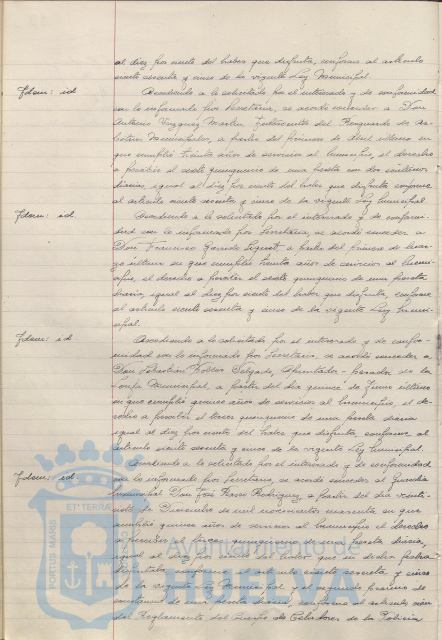 al diez por ciento del haber que disfruta, conforme al artículo
ciento sesenta y cinco de la vigente Ley Municipal.
Idem: id. Accediendo a lo solicitado por el interesado y de conformidad
con lo informado por Secretaría, se acordó conceder a Don
Antonio Vázquez Martín, del Resguardo de Ar-
bitrios Municipales, a partir del primero de Abril último en
que cumplió treinta años de servicios al Municipio, el derecho
a percibir el sexto quinquenio de una peseta con dos céntimos
diarios, igual al diez por ciento del haber que disfruta conforme
al artículo ciento sesenta y cinco de la vigente Ley Municipal
Idem: id. Accediendo a lo solicitado por el interesado y de confor-
midad con lo informado por Secretaría, se acordó conceder a
Don Francisco Garrido a partir del primero de mar-
zo último en que cumplió treinta años de servicios al Muni-
cipio, el derecho a percibir el sexto quinquenio de una peseta
diaria, igual al diez por ciento del haber que disfruta, conforme
al artículo ciento sesenta y cinco de la vigente Ley Muni-
cipal.
Idem: id Accediendo a lo solicitado por el interesado y de confor-
midad con lo informado por Secretaría, se acordó conceder a
Don Delgado, Apuntador-pesador de la
Lonja Municipal, a partir del día quince de Junio último
en que cumplió quince años de servicios al Municipio, el de-
recho a percibir el tercer quinquenio de una peseta diaria
igual al diez por ciento del haber que disfruta, conforme al
artículo ciento sesenta y cinco de la vigente Ley Municipal.
Idem: id. Accediendo a lo solicitado por el interesado y de conformidad
con lo informado por Secretaría, se acordó conceder al Guardia
Municipal Don José Rodríguez a partir del día veinti-
de Diciembre de mil novecientos cuarenta en que
cumplió quince años de servicios al Municipio el derecho
a percibir el tercer quinquenio de una peseta diaria,
igual al diez por ciento del haber que en dicha fecha
disfrutaba, conforme al artículo ciento sesenta y cinco
de la vigente Ley Municipal y el segundo premio de
constancia de una peseta diaria, conforme al artículo
del Reglamento del Cuerpo de Celadores de la Policía
PORTUS MARIS ET TERRAE
Ayuntamiento de
HUELVA